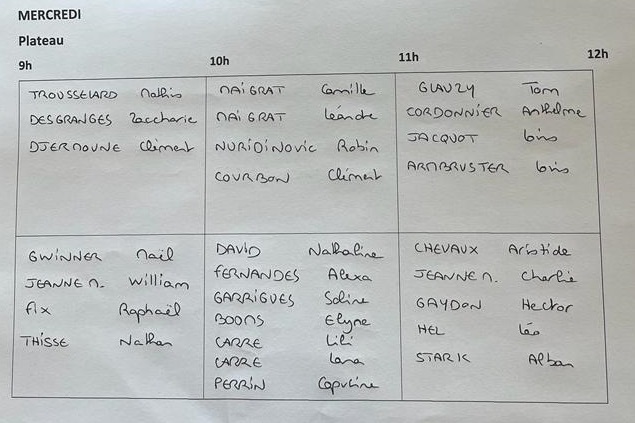 MERCREDI
Plateau
9h 10h 11h 12h
TROUSSELARD Mathis
DESGRANGES Zaccharie
DJERMOUNE Clément
MAIGRAT Camille
MAIGRAT Léandre
NURIDINOVIC Robin
COURBON Clément
GLAUZY Tom
CORDONNIER Anthelme
JACQUOT Loris
ARMBRUSTER Loris
GWINNER Naël
JEANNE M. William
Fix Raphaël
THISSE Nathan
DAVID Nathaline
FERNANDES Alexa
GARRIGUES Soline
BOONS Elyne
CARRE Lili
CARRE Lana
PERRIN Capucine
CHEVAUX Aristide
JEANNE M. Charlie
GAYDON Hector
HEL Léo
STARK Alban